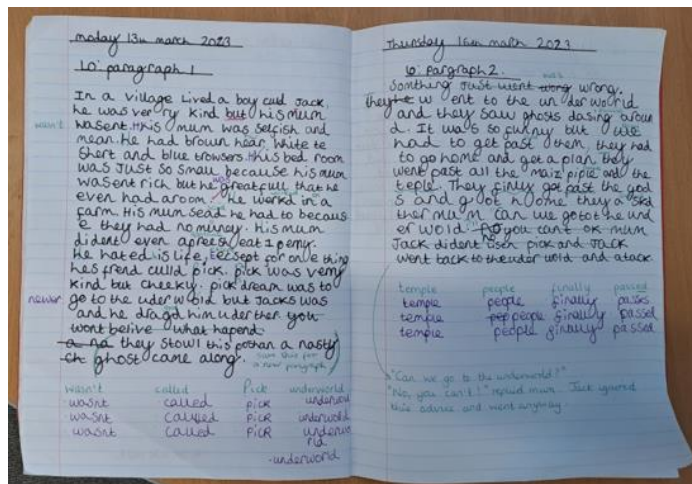 moday 13th march 2023
Lo: paragraph 1
In a village lived a boy cud Jack.
he was very ry kind but his mum
wasn't
wasent. His mum was selfish and
mean. He had brown hear, white te
shert and blue trowsers. His bed room
was just so small because his mum
was
wasent rich but he greatfull that he
even had a room. He workd in a
farm. His mum sead he had to becaus
e they had no muney. His mum
dident even apreesh eat 1 penny.
He hated is life, ecsept for one thing
hes frend culld pick. pick was verry
kind but cheeky. pick dream was to
never
go to the uder world but Jacks was
and he dragd him uder ther you
wont belive what hapend
they stowl this pothan a nasty
ch ghost came along.
save this for
a new paragraph
wasn't called Pick underworld
wasnt called pick underworld
wasnt caulled pick underworld
wasnt called pick underwo
rld
-underworld
Thursday 16th march 2023
Lo: pargraph 2.
was
Somthing just went wong wrong.
they w ent to the un der woorld
and they saw ghosts dasing aroun
d. It was so funny but we
had to get past them, they had
to go home and get a plan they
went past all the maiz piple and the
teple. They finly got past the god
s and goot hoome they a skd
ther mum can we go tot he und
er wold. No you cant ok mum
Jack dident lisen pick and Jack
went back to the uder wold and atack.
temple people finally passed
temple people finally passes
temple people finally passed
temple people finally passed
"Can we go to the underworld?"
"No, you can't!" replied mum. Jack ignored
this advice and went anyway.